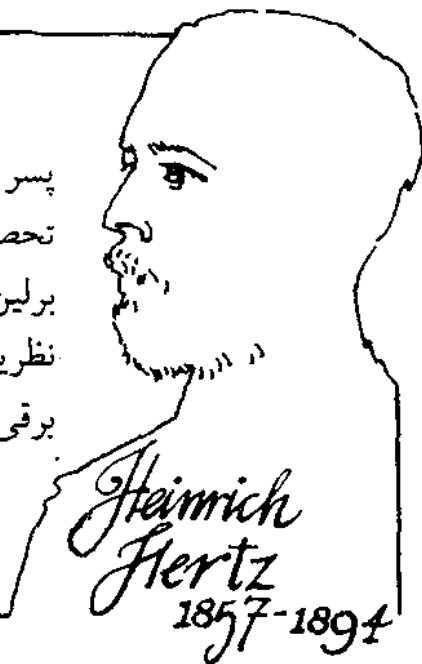 پسر
تحص
برلین
نظریه
برقی
Heinrich
Hertz
1857-1894